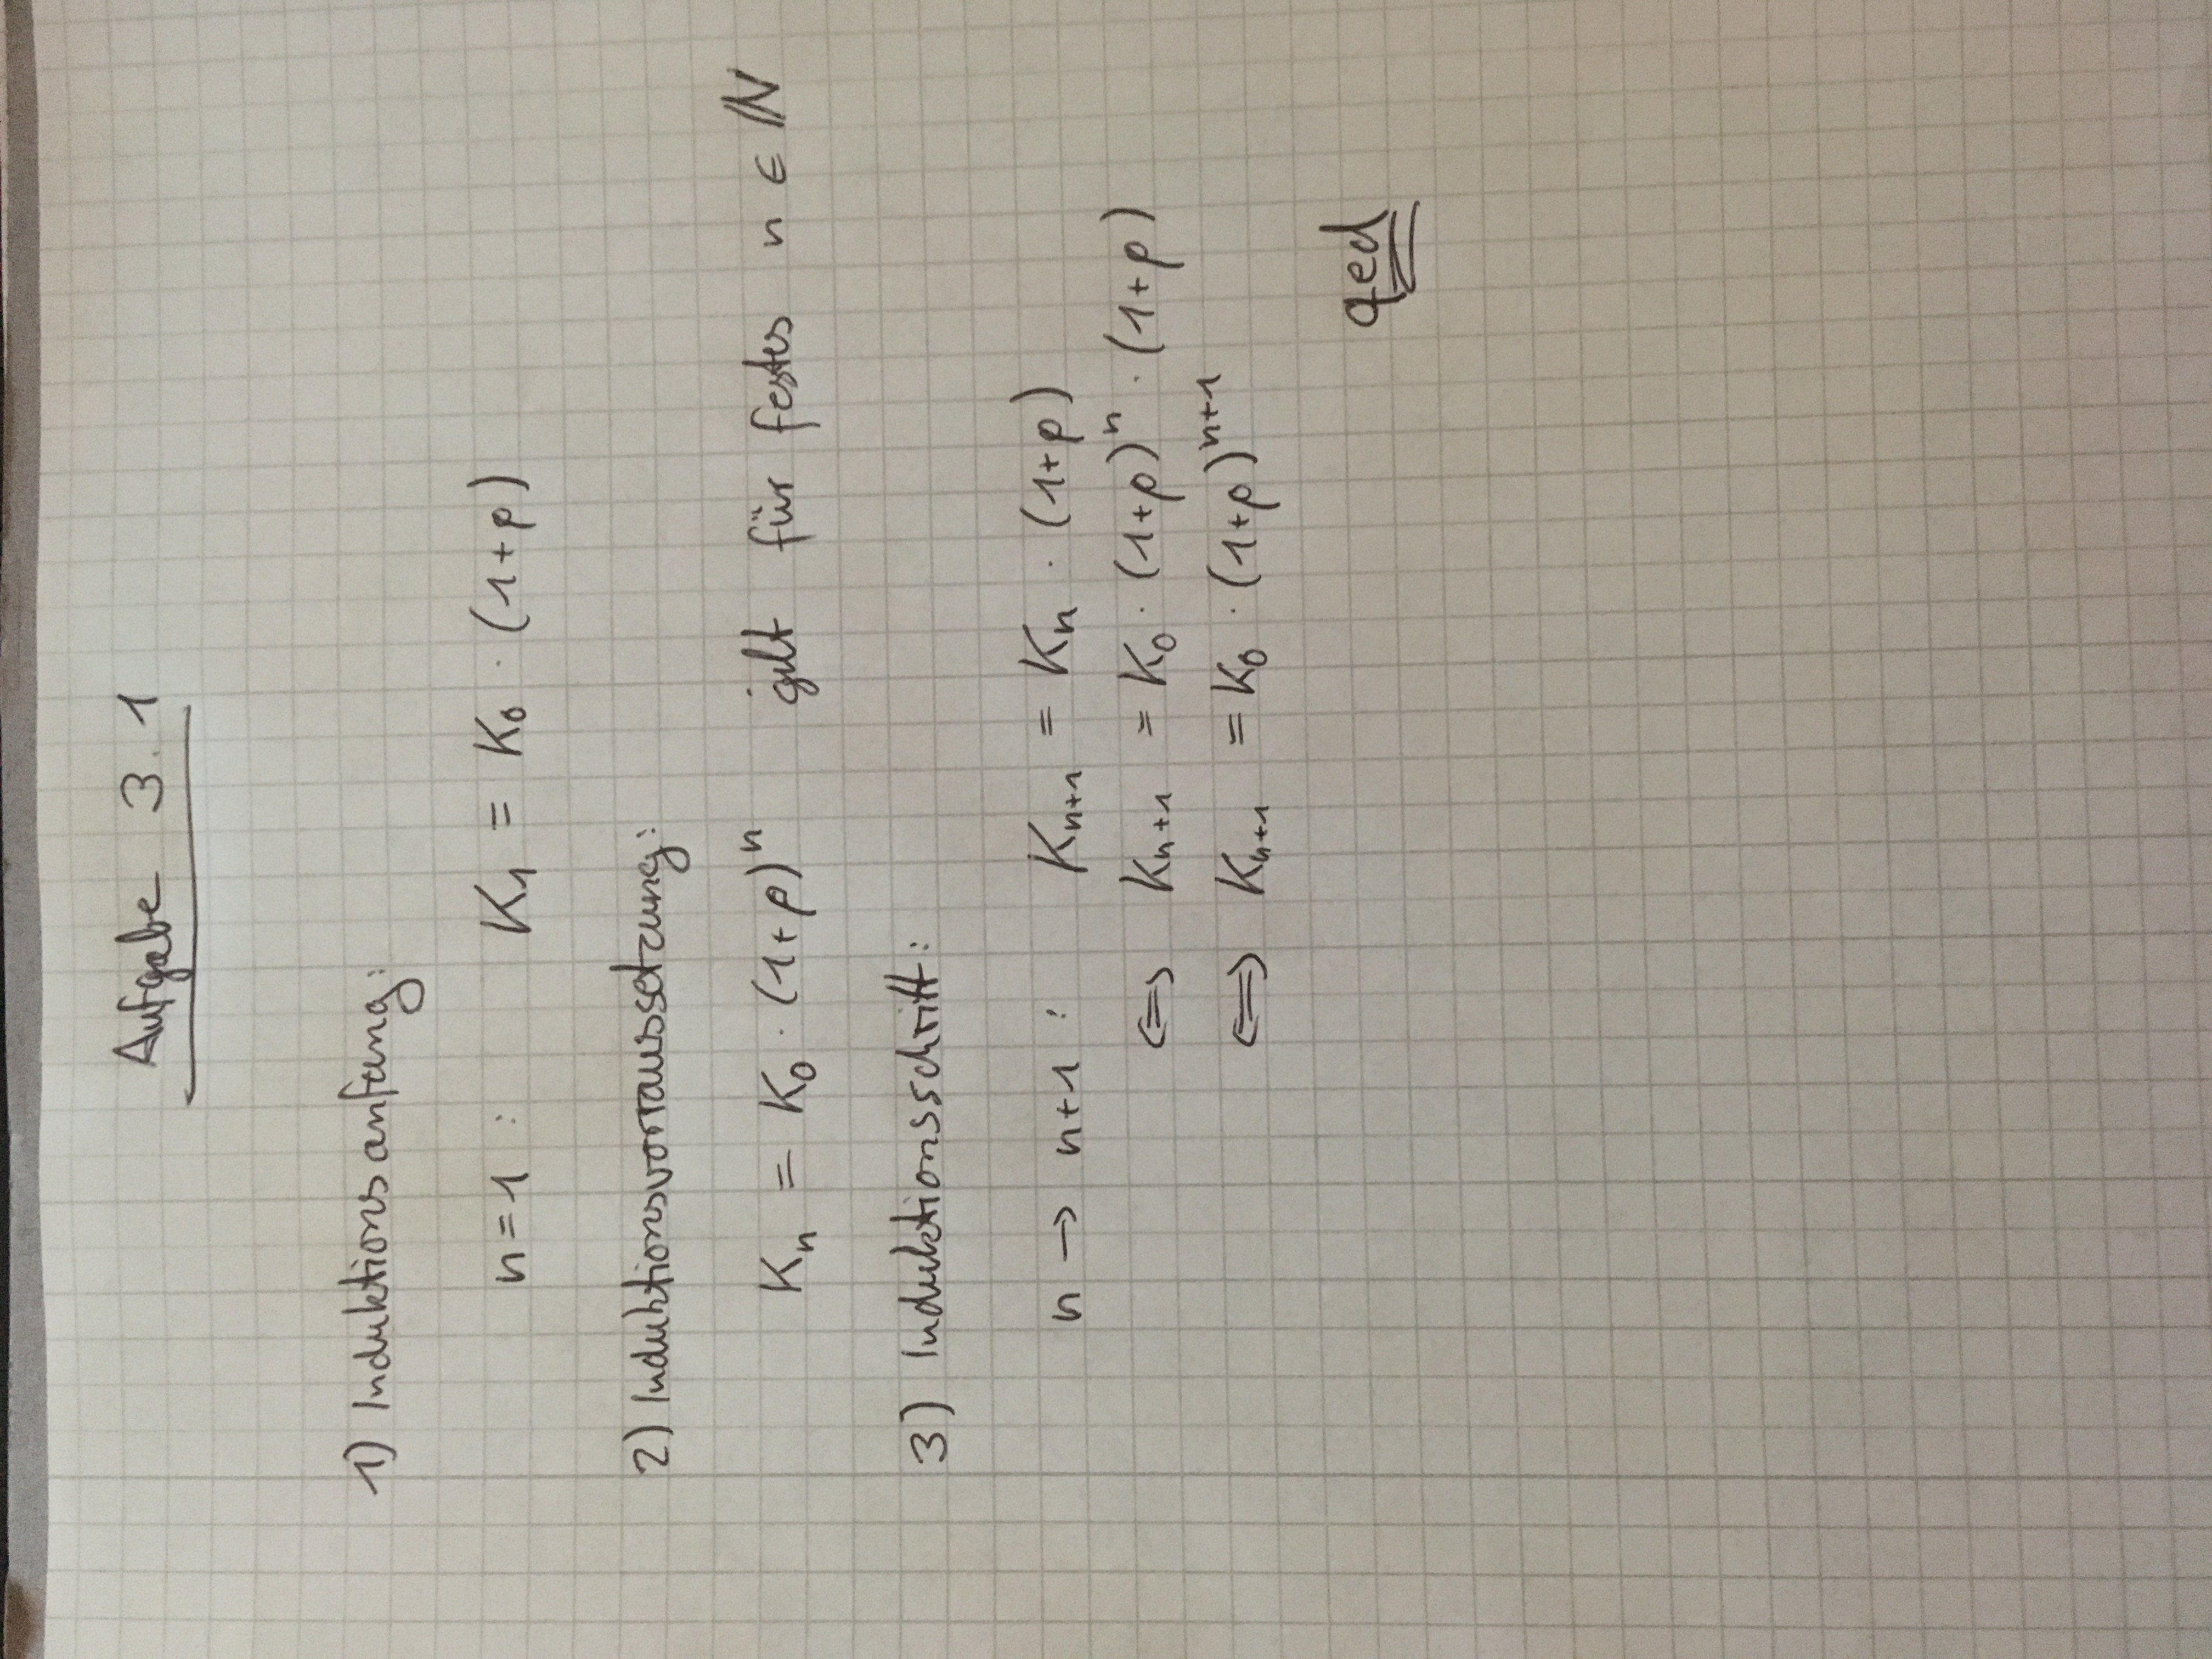 Aufgabe 3.1
1) Induktionsanfang:
n=1 : K₁ = K₀ · (1+p)
2) Induktionsvorraussetzung:
Kₙ = K₀ · (1+p)ⁿ gilt für festes n ∈ ℕ
3) Induktionsschritt:
n → n+1 : Kₙ₊₁ = Kₙ · (1+p)
⇔ Kₙ₊₁ = K₀ · (1+p)ⁿ · (1+p)
⇔ Kₙ₊₁ = K₀ · (1+p)ⁿ⁺¹
qed